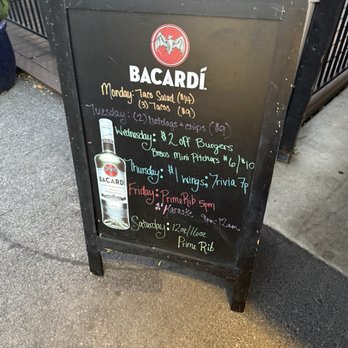 BACARDÍ
Monday: Taco Salad ($14)
(3) Tacos ($9)
Tuesday: (2) hotdogs + chips ($9)
Wednesday: $2 off Burgers
Mini Pitchers $6/$10
Thursday: $1 wings; Trivia 7p
BACARDÍ
Friday: Prime Rib 5pm
Karaoke 9pm-12am
Saturday: 12oz/16oz
Prime Rib